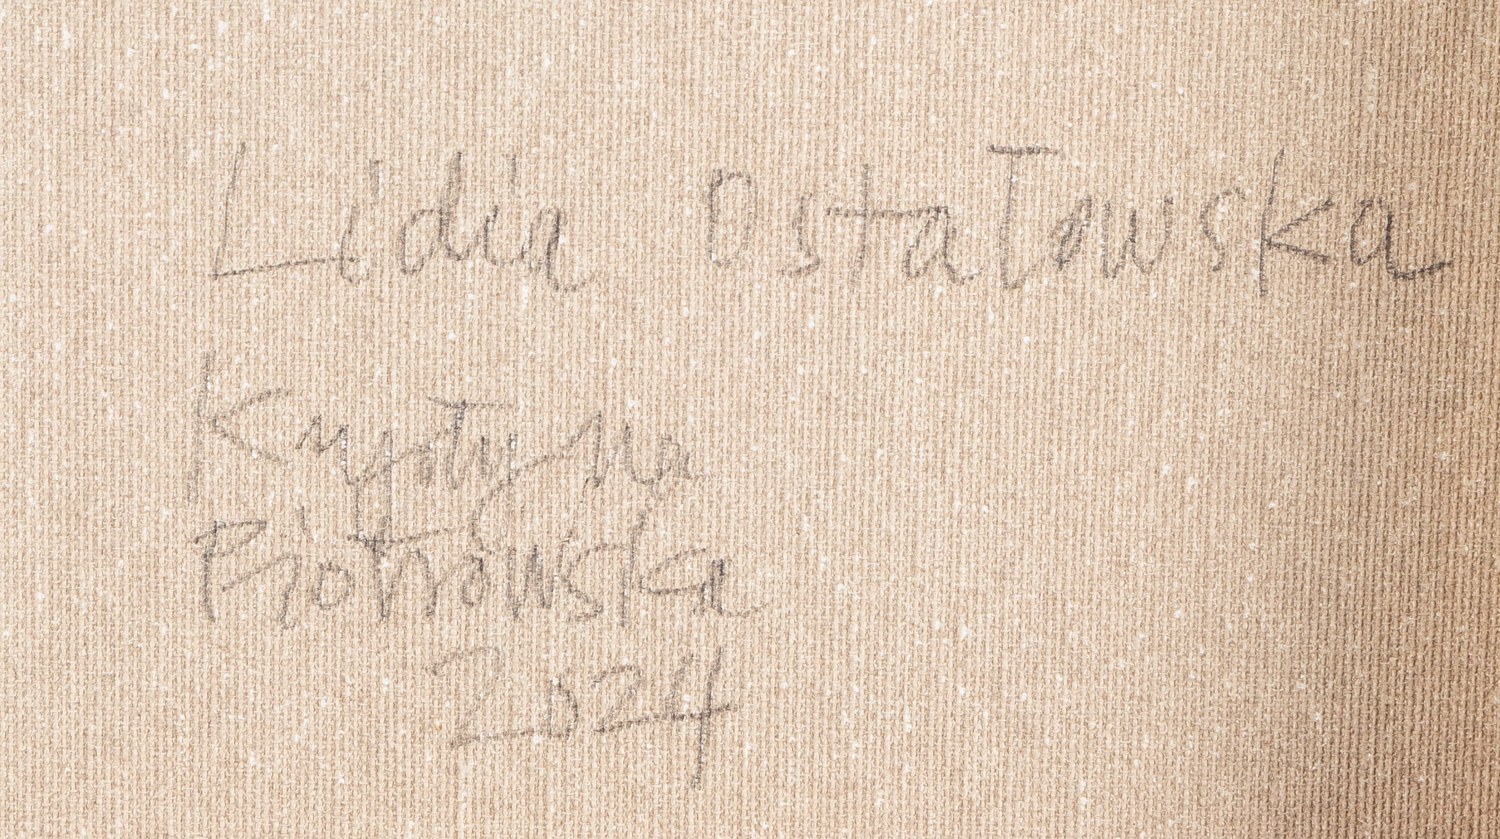 Lidia Ostałowska
Krystyna
Piotrowska
2024